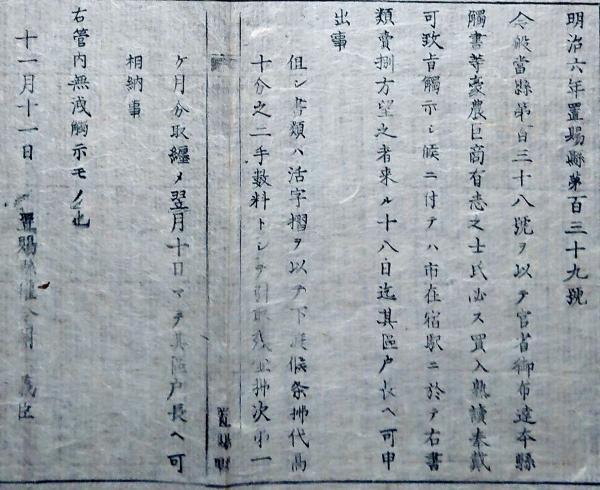 明治六年置賜縣第百三十九號
今般當縣第百三十八號ヲ以テ官省御布達本縣
觸書等豪農巨商有志之士民必ス買入熟讀奉戴
可致旨觸示シ候ニ付テハ市在宿驛ニ於テ右書
類賣捌方望之者來ル十八日迄其區戸長ヘ可申
出事
但シ書類ハ活字摺ヲ以テ下渡候条拂代高
十分之二手數料トシテ引取残金拂次第一
ケ月分取纏メ翌月十日マテ其區戸長ヘ可
相納事
右管内無洩觸示モノ也
十一月十一日 置賜縣